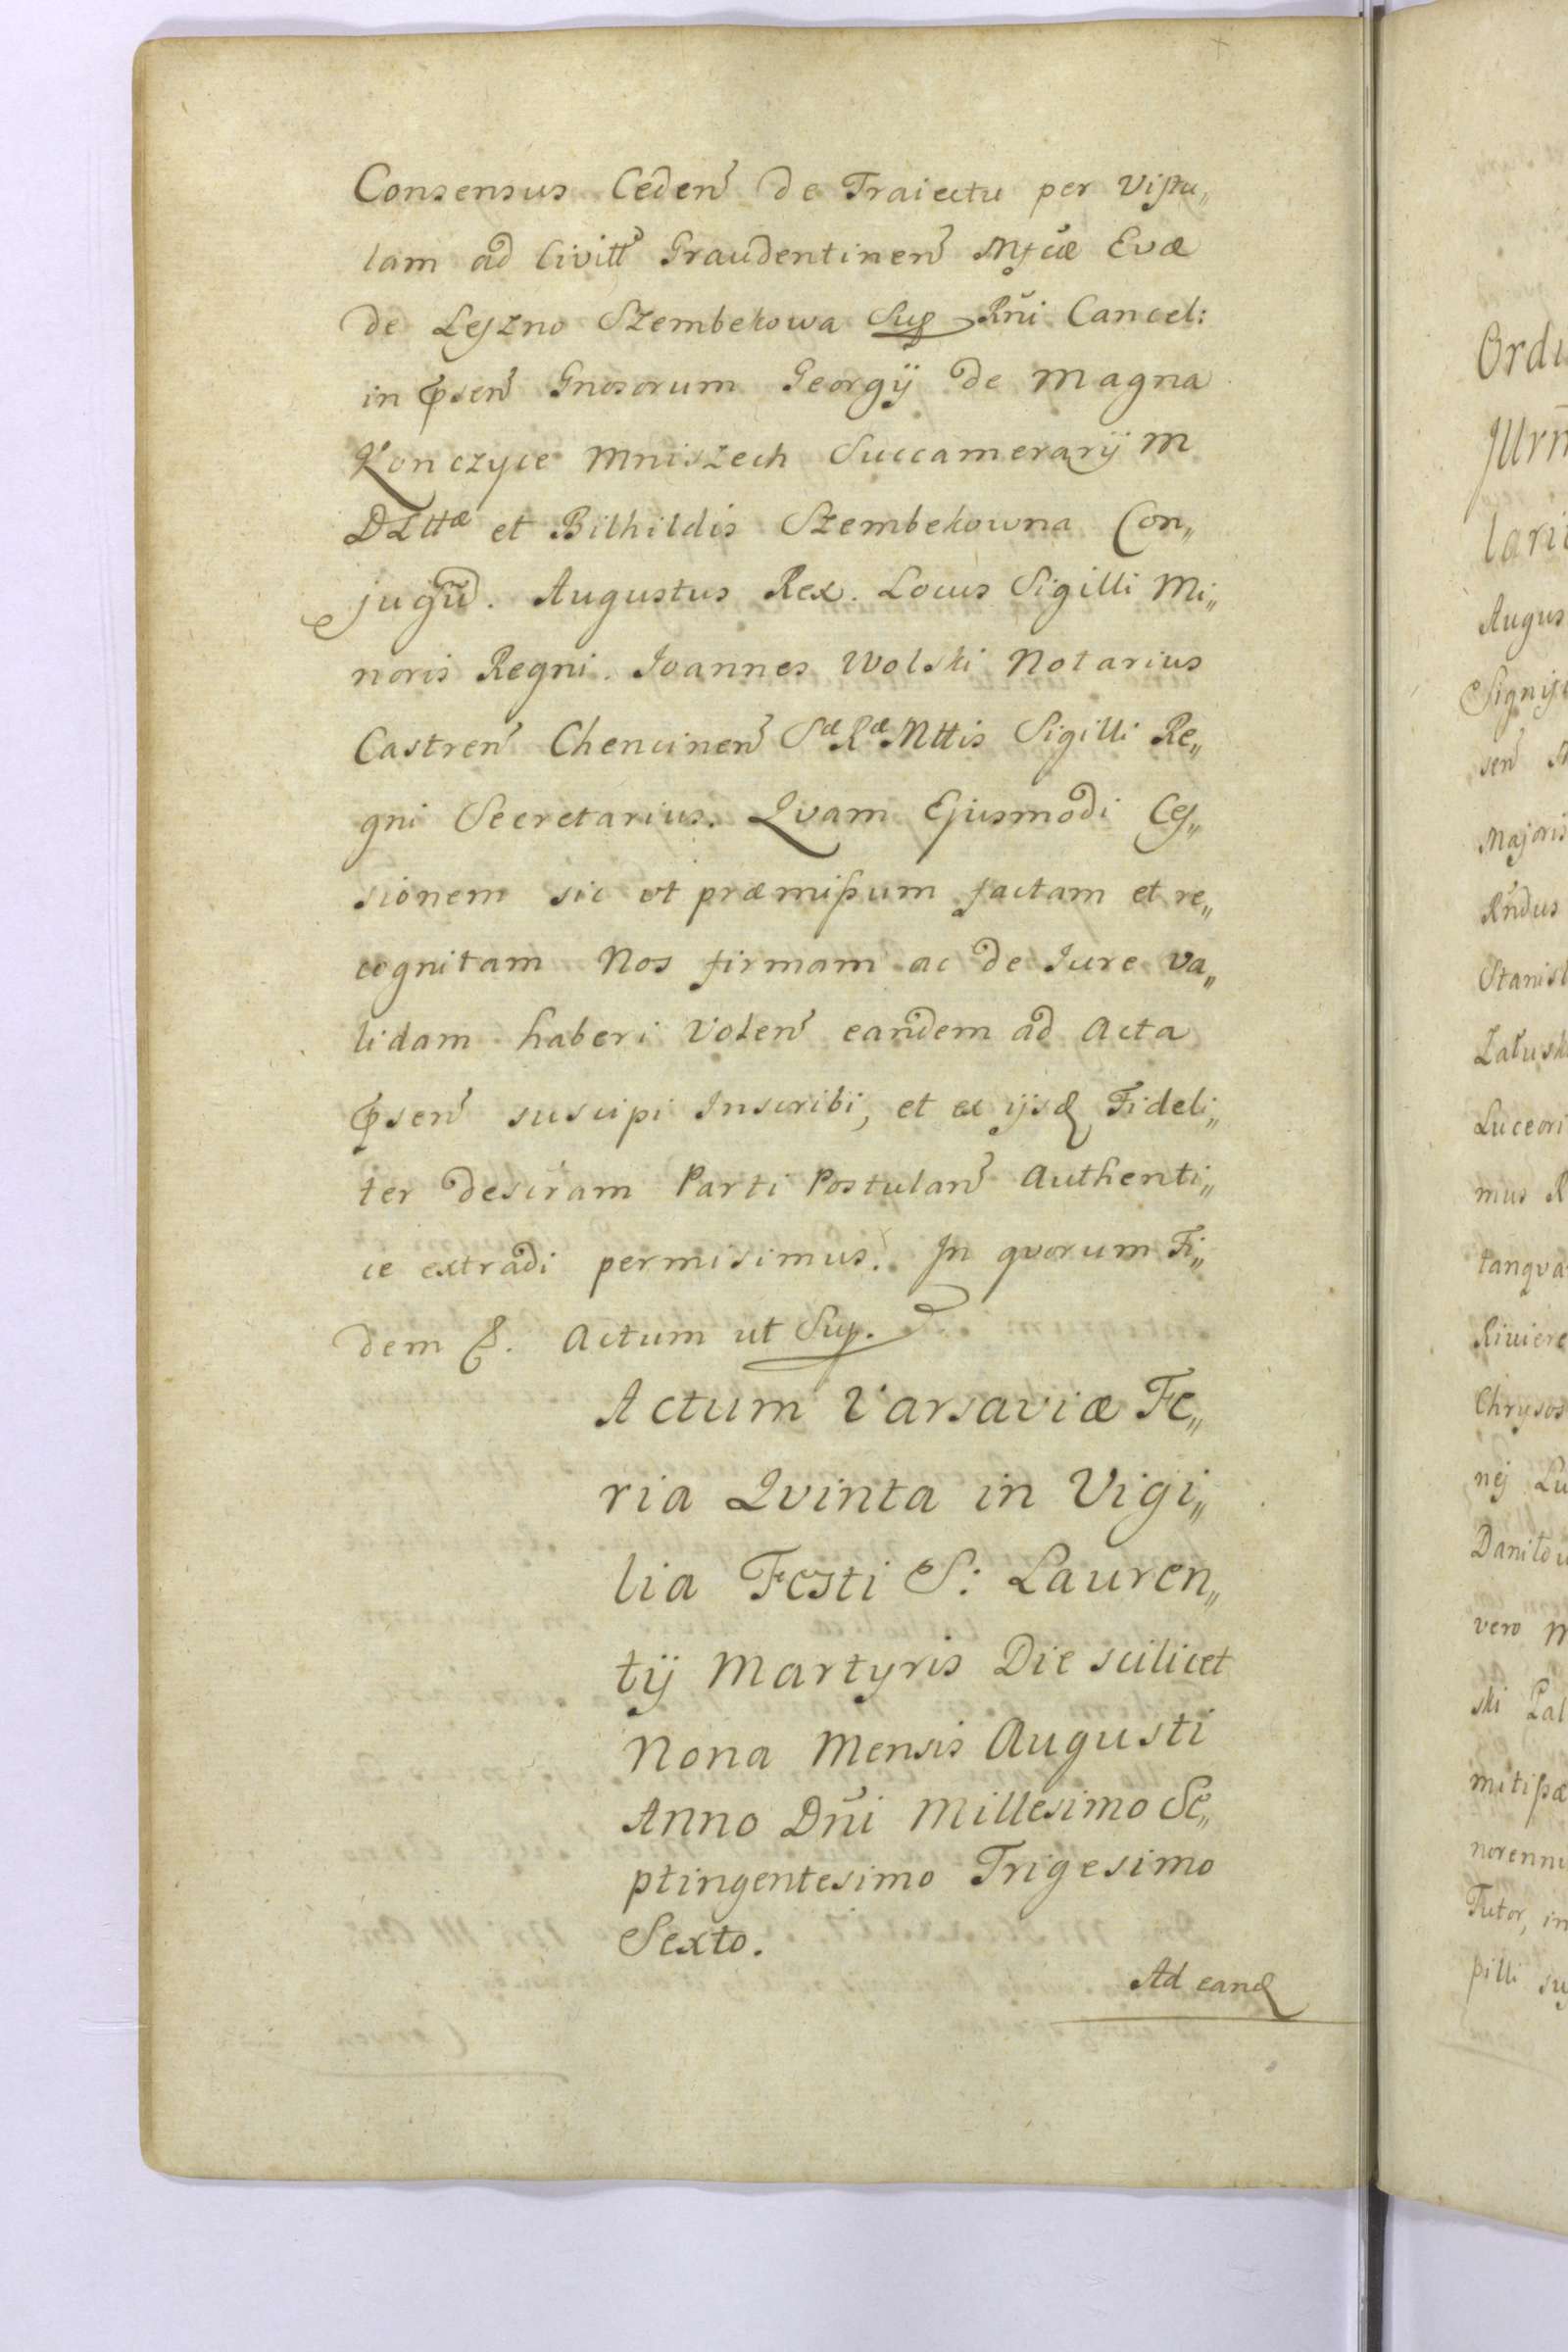 Consensus Ceden̄ de Traiectu per Vistu„
lam ad Civitt̄ Graudentinen̄ Mfcæ Evæ
de Leszno Szembekowa Sup Rn̄i Cancel:
in Pּsen̄ Gnosorum Georgij de Magna
Konczyce Mniszech Succamerarij M
DLttæ et Bithildis Szembekowna Con„
jugū. Augustus Rex. Locus Sigilli Mi„
noris Regni. Joannes Wolski Notarius
Castren̄ Chencinen̄ SæRæMttis Sigilli Re„
gni Secretarius. Qvam Ejusmodi Ces„
sionem sic ut præmißum factam et re„
cognitam Nos firmam ac de Jure va„
lidam haberi Volen̄ eandem ad Acta
Pּsen̄ suscipi Inscribi, et ex ijsđ Fideli„
ter descr̄am Parti Postulan̄ Authenti„
ce extradi permisimus. In qvorum Fi„
dem &. Actum ut Sup.
Actum Varsaviæ Fe„
ria Qvinta in Vigi„
lia Festi S: Lauren„
tij Martyris Die scilicet
Nona Mensis Augusti
Anno Dn̄i Millesimo Se„
ptingentesimo Trigesimo
Sexto.
Ad eanđ
Ordi
lari
Augus
sen̄
Majoris
Rn̄dus
Stanisl
Załusk
Luceori
mus R
tanqva
Riviere
Chrysos
nej Lu
Daniło
vero M
ski Pal
mitißæ
norenni
Tutor, in
pilli su